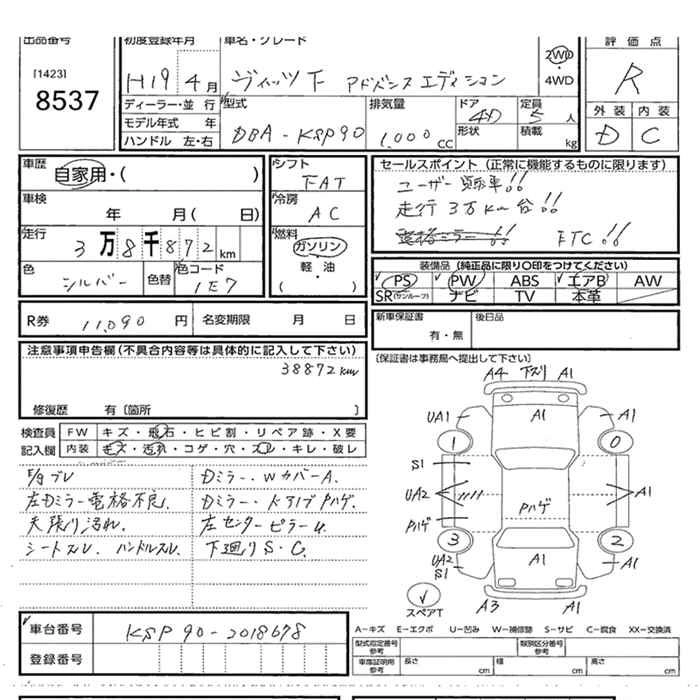 出品番号
[1423]
8537
初度登録年月
H19 4月
車名・グレード
ヴィッツ F アドバンスエディション
2WD・4WD
評価点
R
外装 内装
D C
ディーラー・並行
モデル年式 年
ハンドル 左・右
型式
DBA-KSP90
排気量
1,000 cc
ドア 4D
形状
定員 5 人
積載 kg
車歴
自家用・( )
車検
年 月( 日)
走行
3万8千872 km
色
シルバー
色替
色コード
1E7
シフト
FAT
冷房
AC
燃料
ガソリン
軽・油
( )
セールスポイント(正常に機能するものに限ります)
ユーザー買取車!!
走行3万km台!!
ETC!!
装備品(純正品に限り○印をつけてください)
PS PW ABS エアB AW
SR(サンルーフ) ナビ TV 本革
R券 11,090 円 名変期限 月 日
新車保証書
有・無
後日品
[保証書は事務局へ提出して下さい]
注意事項申告欄(不具合内容等は具体的に記入して下さい)
38872km
修復歴 有〔箇所 〕
検査員記入欄
FW キズ・飛石・ヒビ割・リペア跡・X要
内装 キズ・汚れ・コゲ・穴・スレ・キレ・破レ
左Dミラー電格不良.
天張り汚れ.
シートスレ. ハンドルスレ.
Dミラー・WカバーA.
Dミラー・ドアノブPハゲ.
左センターピラーU.
下廻りS・C.
A4 下ズリ A1
UA1 A1 A1
1 0
S1
UA2 A1
Pハゲ Pハゲ
3 2
UA2 S1 A1 A1
スペアT
A3 A1
A-キズ E-エクボ U-凹み W-補修跡 S-サビ C-腐食 XX-交換済
車台番号
KSP90-2018678
登録番号
型式指定番号 参考
類別区分番号 参考
車庫証明用 参考
長さ cm
幅 cm
高さ cm